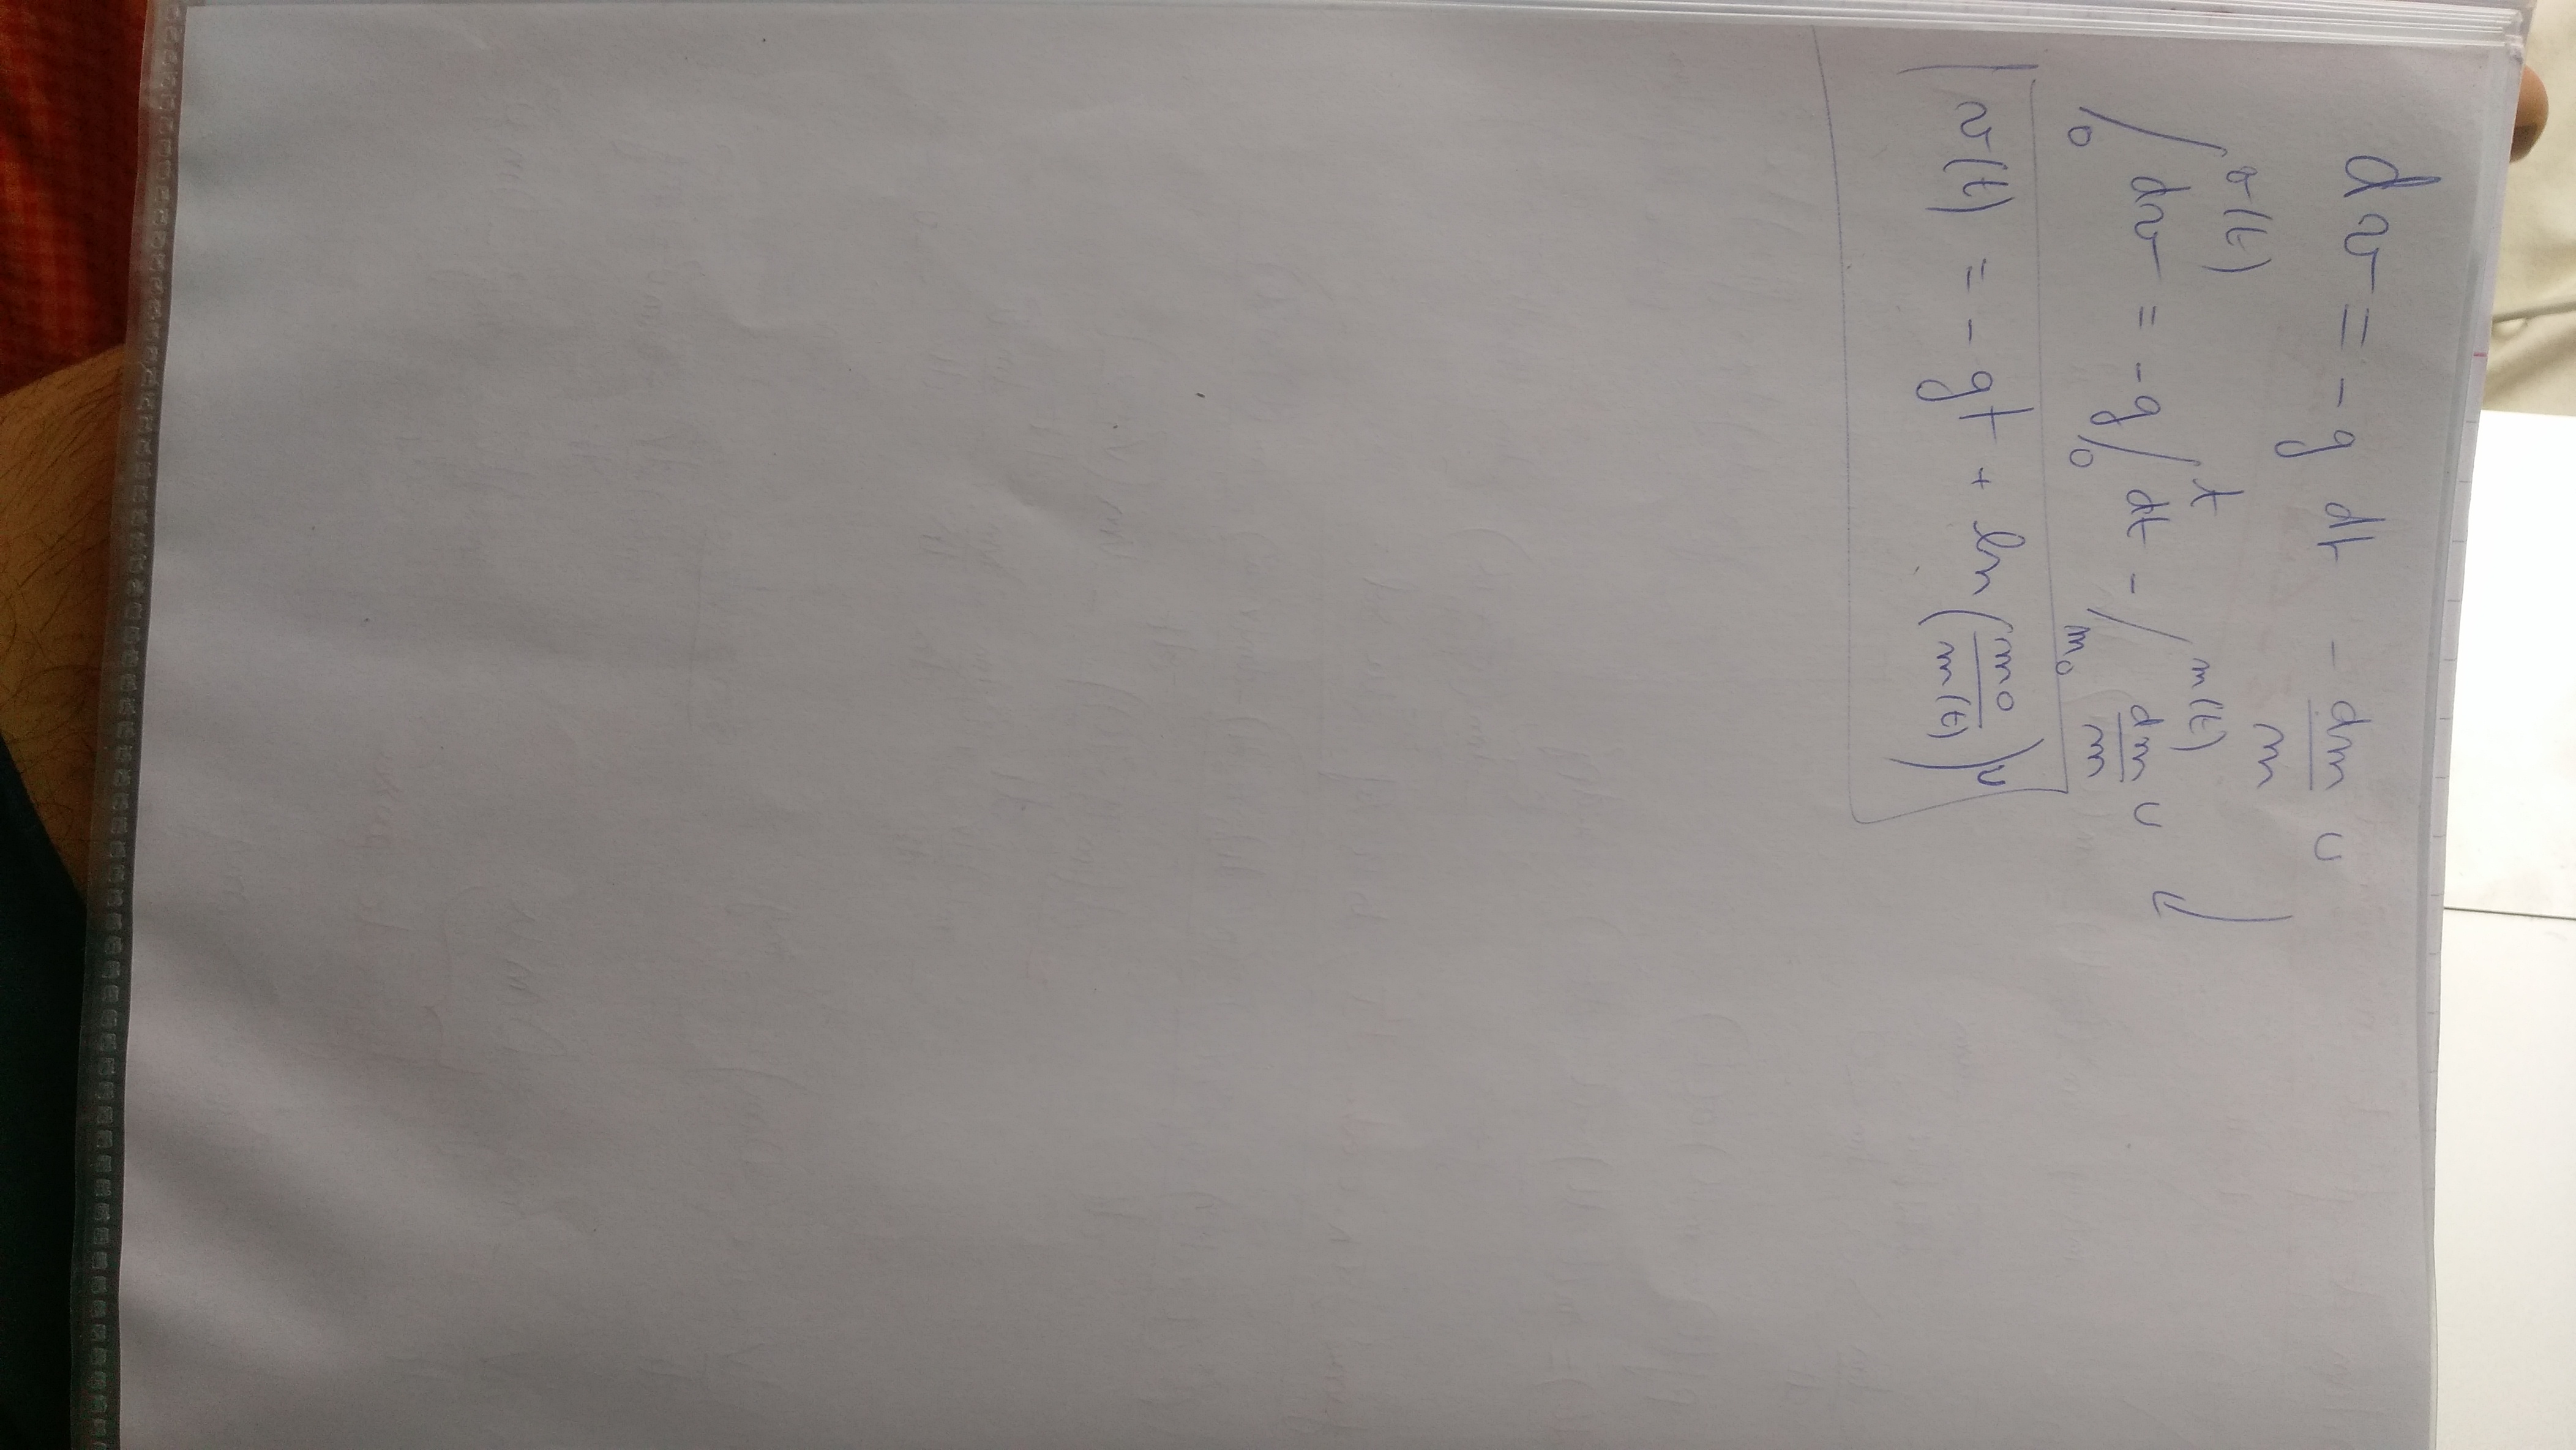 dv = - g dt - dm/m u
∫₀^v(t) dv = -g ∫₀^t dt - ∫_m₀^m(t) dm/m u
v(t) = - gt + ln(m₀/m(t)) u